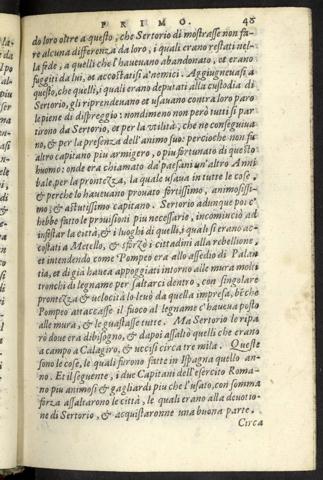 PRIMO. 48
do loro oltre a questo, che Sertorio di mostrasse non fa-
re alcuna differenza da loro, i quali erano restati nel-
la fede, a quelli che l'haueuano abandonato, et erano
fuggiti da lui, et accostatisi a'nemici. Aggiugneuasi a
questo, che quelli, i quali erano deputati alla custodia di
Sertorio, gli riprendeuano et usauano contra loro paro
le piene di dispreggio: nondimeno non però tutti si par
tirono da Sertorio, et per la vtilità, che ne conseguiua
no, & per la presenza dell'animo suo: percioche non fu
altro capitano piu armigero, o piu fortunato di questo
huomo: onde era chiamato da'paesani un'altro Anni
bale per la prontezza, la quale usaua in tutte le cose,
& perche lo haueuano prouato fortissimo, animosissi-
mo, & astutissimo capitano. Sertorio adunque poi c'
hebbe fatto le prouisioni piu necessarie, incominciò ad
infestar le città, & i luoghi di quelli, i quali si erano ac-
costati a Metello, & sforzò i cittadini alla rebellione,
et intendendo come Pompeo era allo assedio di Palan
tia, et di già haueua appoggiati intorno alle mura molti
tronchi di legname per saltarci dentro, con singolare
prontezza & uelocità lo leuò da quella impresa, benche
Pompeo attaccasse il fuoco al legname c'haueua posto
alle mura, & le guastasse tutte. Ma Sertorio le ripa
rò doue era dibisogno, & dapoi assaltò quelli che erano
a campo a Calagiro, & uccisi circa tre mila. Queste
sono le cose, le quali furono fatte in Ispagna quello an-
no. Et il seguente, i due Capitani dell'esercito Roma-
no piu animosi & gagliardi piu che l'usato, con somma
forza assaltarono le città, le quali erano alla deuotio-
ne di Sertorio, & acquistaronne una buona parte.
Circa